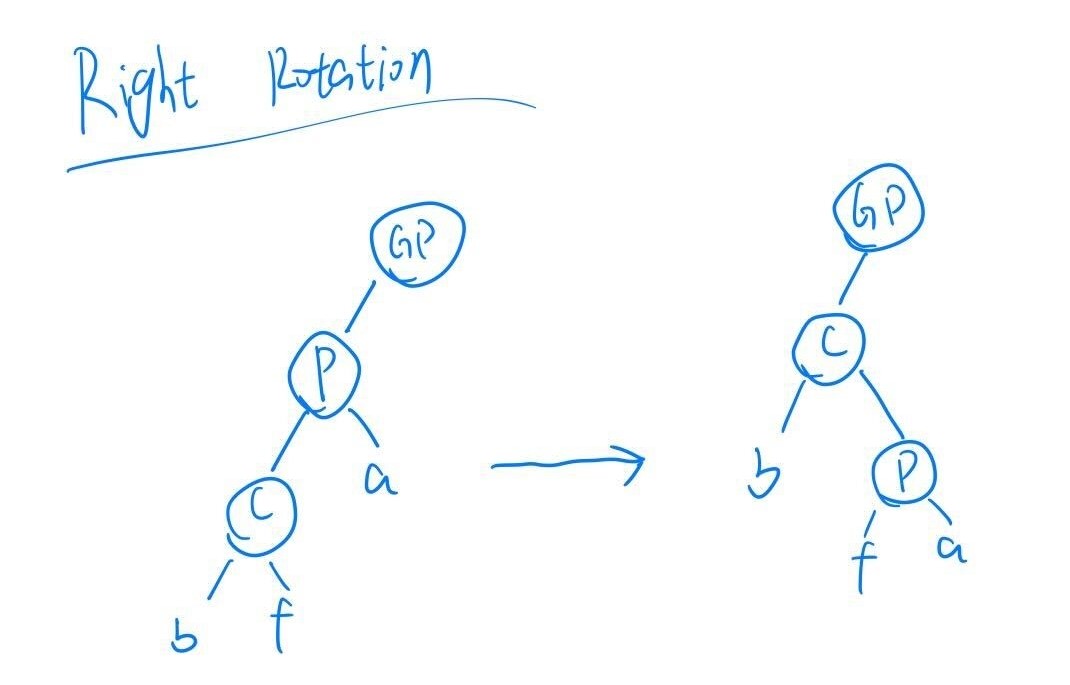 Right Rotation
GP
P
C
a
b
f
GP
C
b
P
f
a